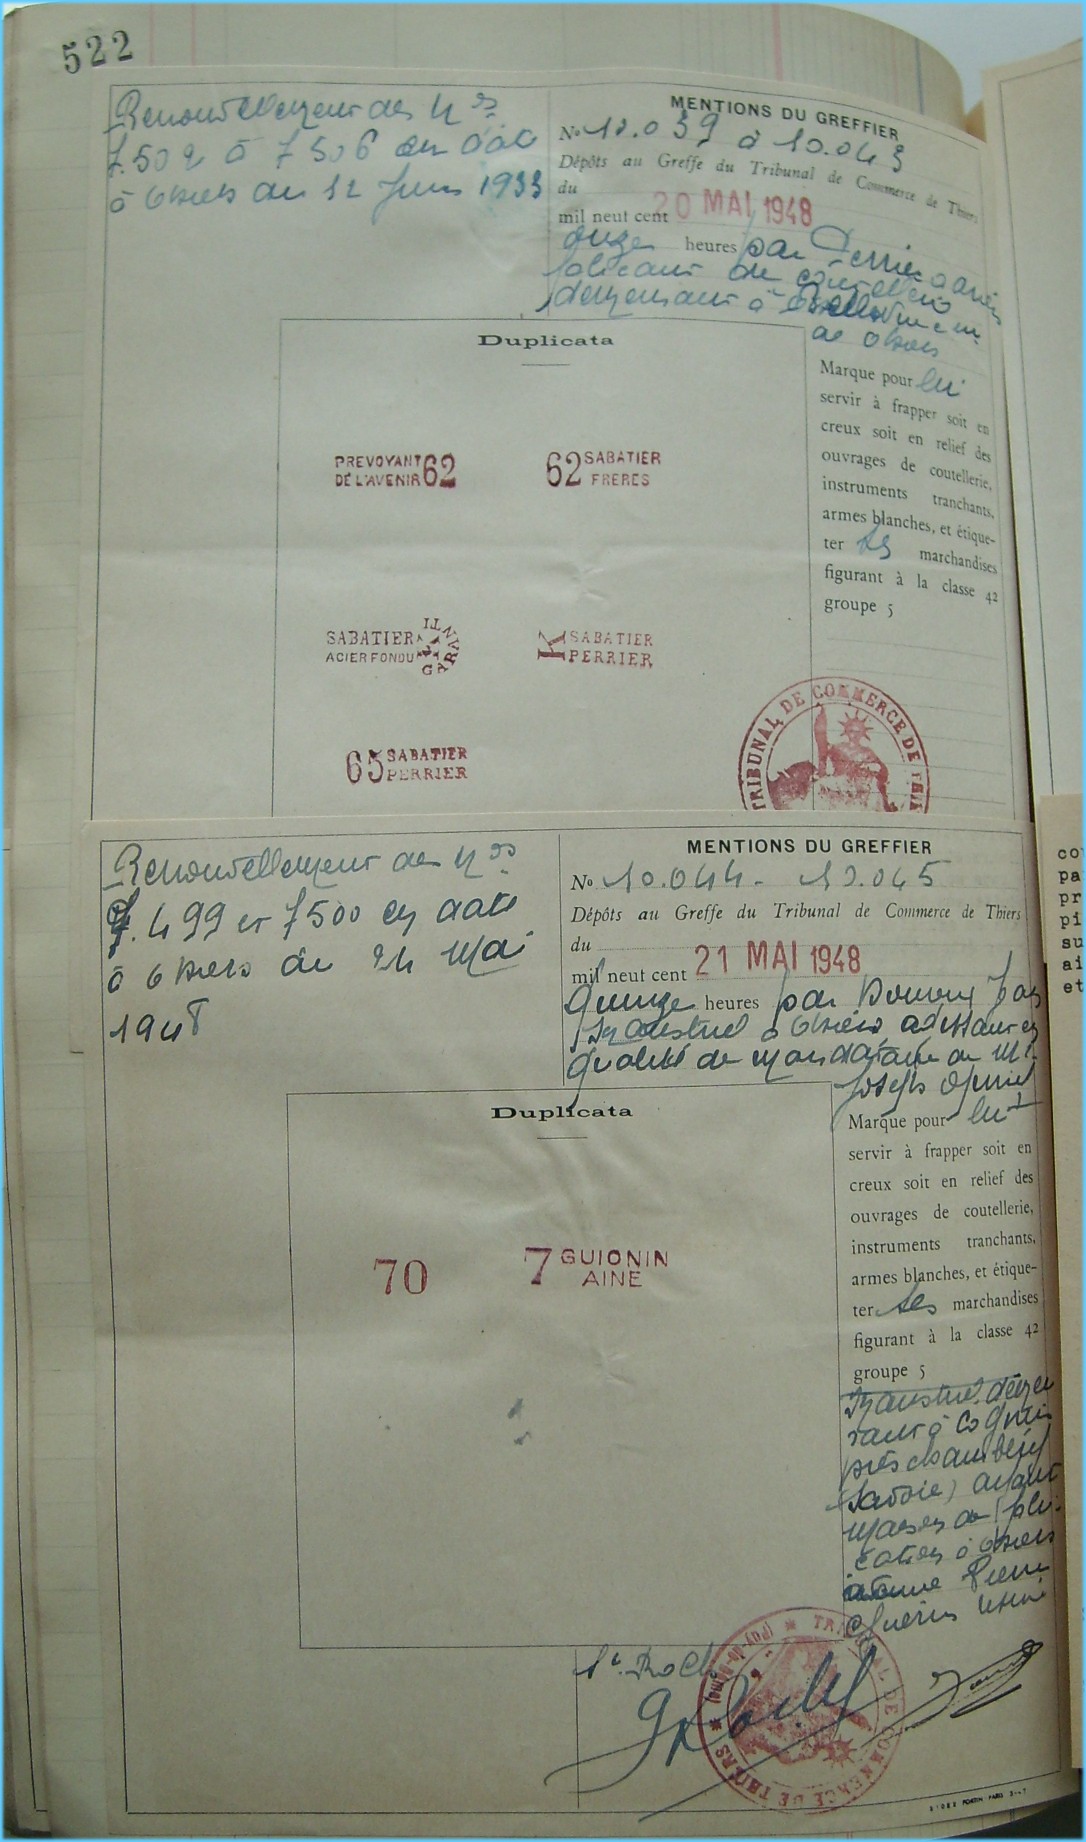 522
Renouvellement des Nos
7.502 à 7506 en date
à Thiers du 12 Juin 1933
MENTIONS DU GREFFIER
No 10.039 à 10.043
Dépôts au Greffe du Tribunal de Commerce de Thiers
du
mil neuf cent 20 MAI 1948
onze heures par Perrier
fabricant de coutellerie
demeurant à
de Thiers
Duplicata
PREVOYANT 62
DE L'AVENIR
62 SABATIER
FRERES
SABATIER
ACIER FONDU
GARANTI
K SABATIER
PERRIER
65 SABATIER
PERRIER
Marque pour lui
servir à frapper soit en
creux soit en relief des
ouvrages de coutellerie,
instruments tranchants,
armes blanches, et étique-
ter ses marchandises
figurant à la classe 42
groupe 5
TRIBUNAL DE COMMERCE DE THI
Renouvellement des Nos
7.499 et 7500 en date
à Thiers du 24 Mai
MENTIONS DU GREFFIER
No 10.044 - 10.045
Dépôts au Greffe du Tribunal de Commerce de Thiers
du
mil neuf cent 21 MAI 1948
quinze heures par
Industriel à Thiers, agissant en
qualité de mandataire de Mr
Joseph
Duplicata
70
7 GUIONIN
AINE
Marque pour lui
servir à frapper soit en
creux soit en relief des
ouvrages de coutellerie,
instruments tranchants,
armes blanches, et étique-
ter ses marchandises
figurant à la classe 42
groupe 5
Industriel demeu
rant à Cognin
près Chambéry
(Savoie) ayant
à Thiers
avenue Pierre
Guérin
TRIBUNAL DE COMMERCE DE THIERS (Puy-de-Dôme)
co
pa
pr
pi
su
ai
et